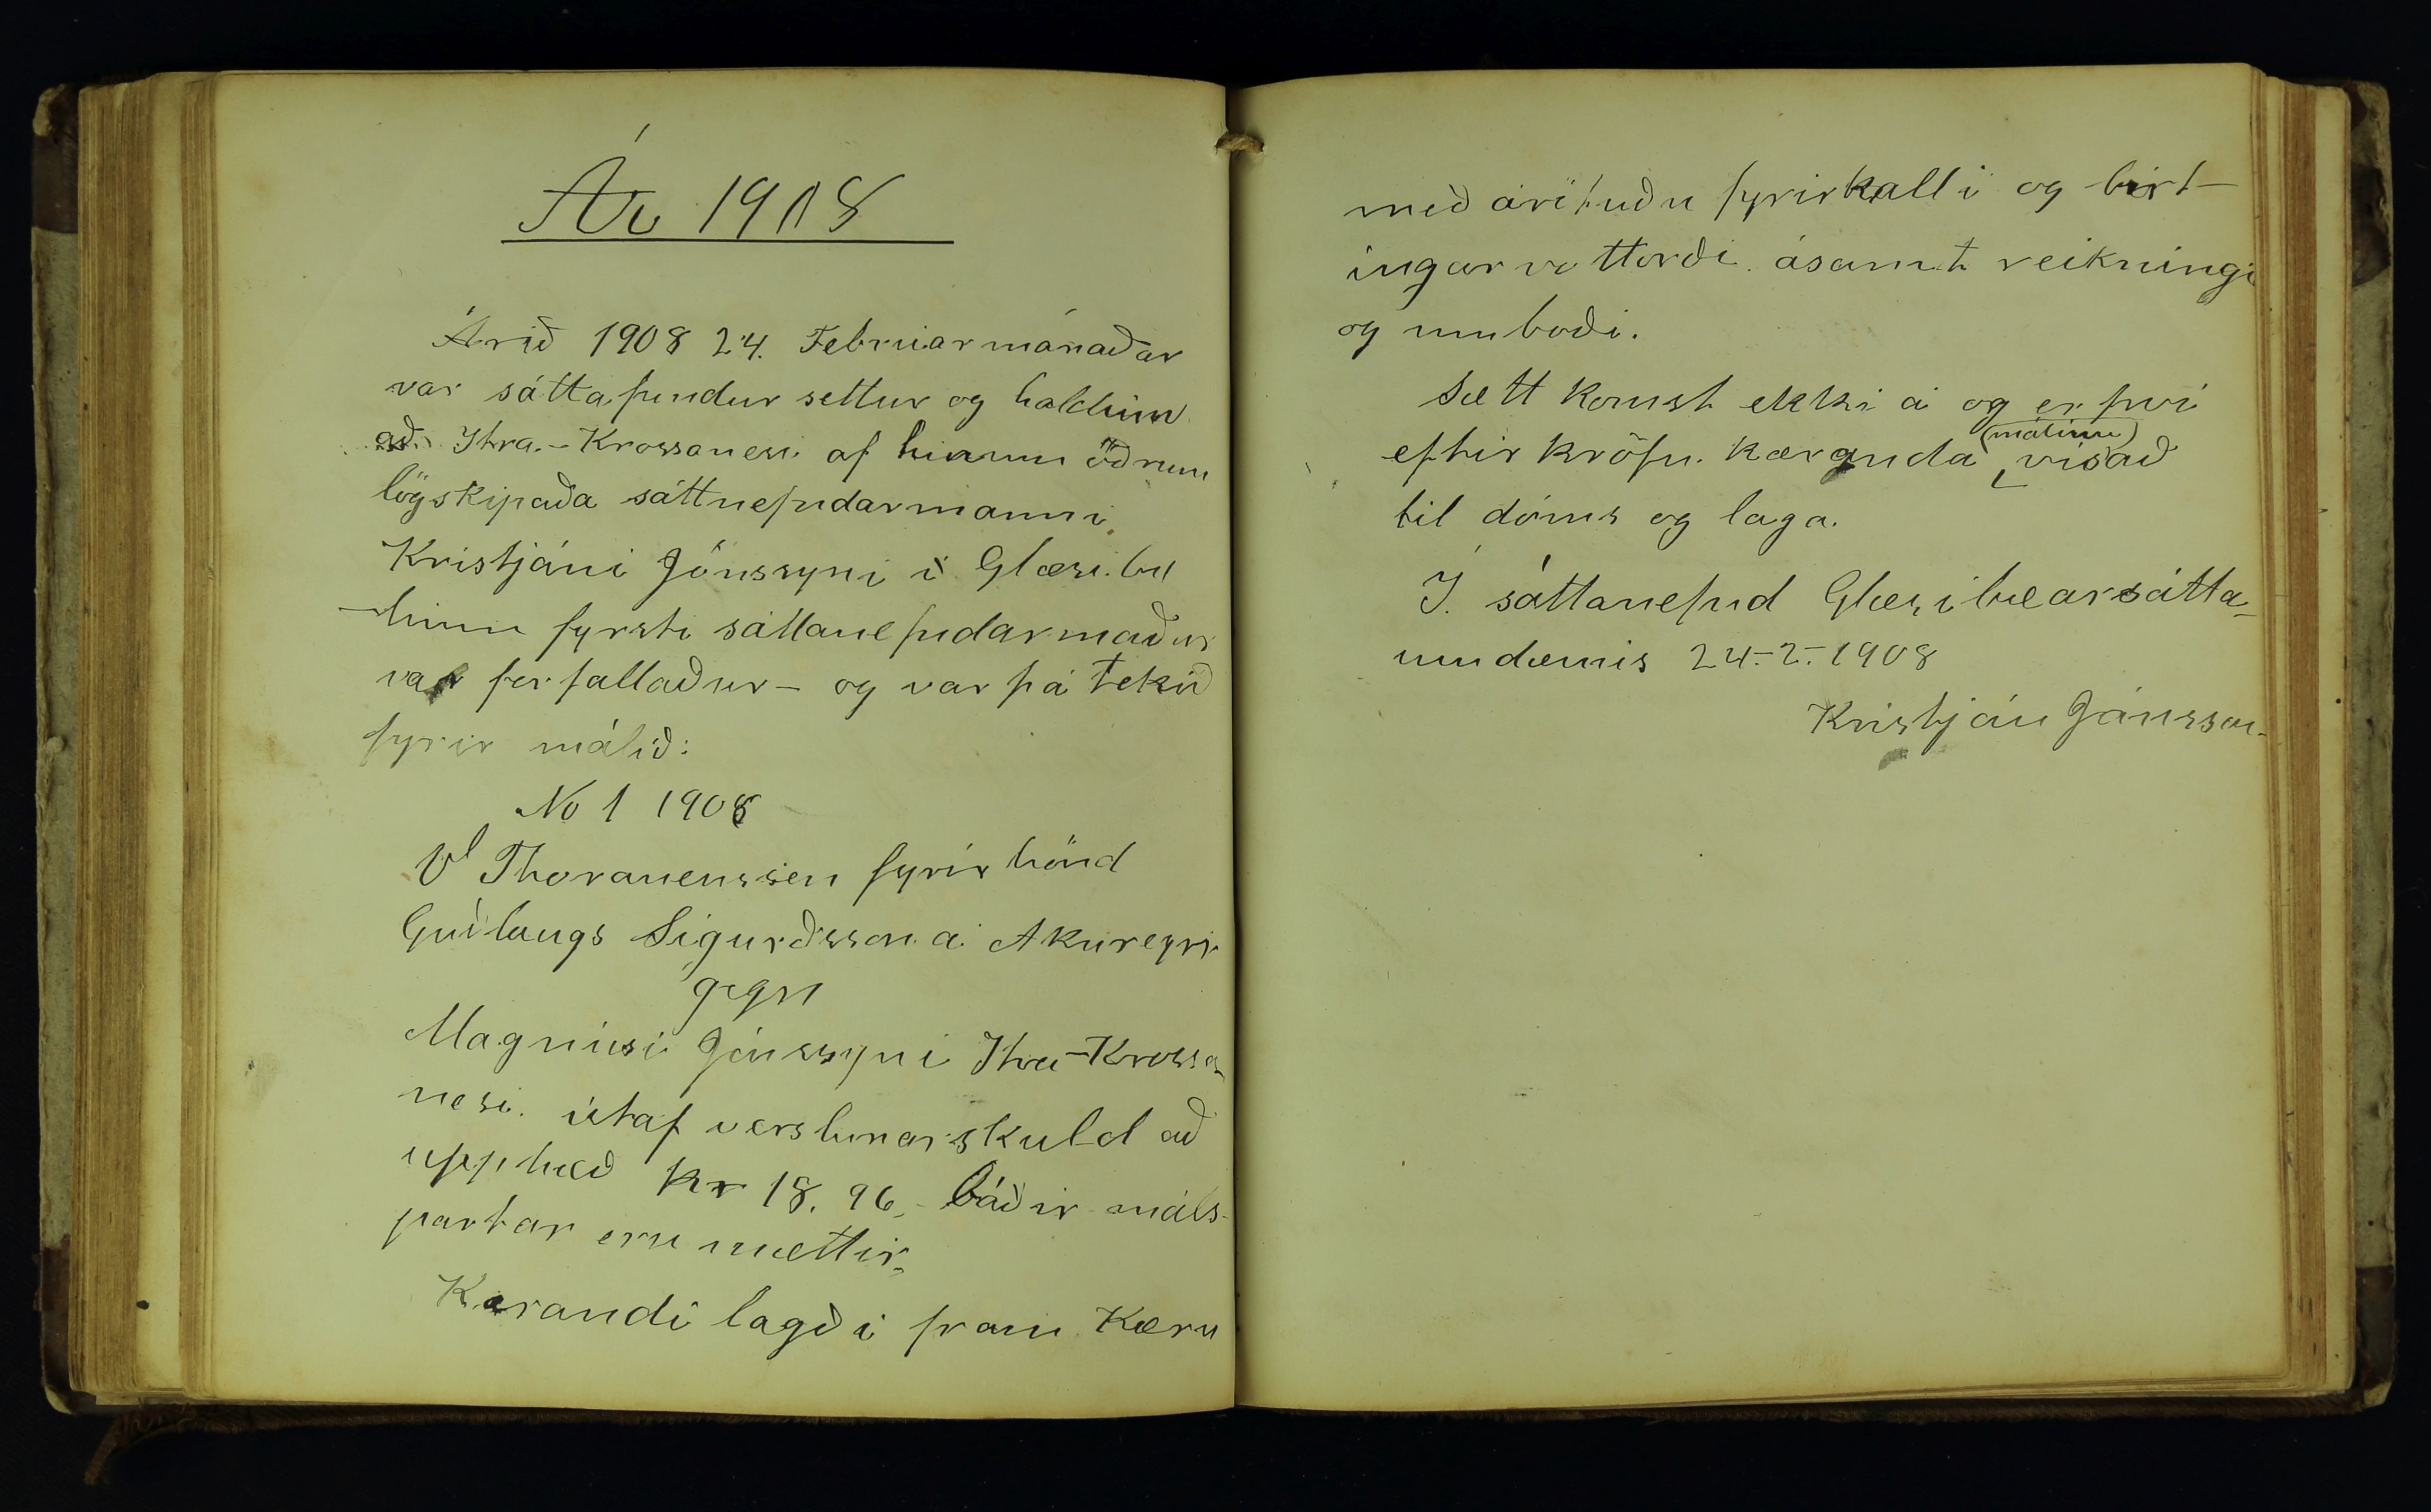 Ár 1908
Árið 1908 24. Februarmánaðar
var sáttafundur settur og haldinn
að Ytra-Krossanesi af hinum öðrum
lögskipaða sáttnefndarmanni
Kristjáni Jónssyni í Glæsibæ
- hinn fyrsti sáttanefndarmaður
var forfallaður - og var þá tekið
fyrir málið:
No 1 1908
V Thoranenssen fyrir hönd
Guðlaugs Sigurðsson á Akureyri
gegn
Magnúsi Jónssyni Ytra-Krossa-
nesi. útaf verslunarskuld að
upphæð kr 18.96, - báðir máls-
partar eru mættir.
Kærandi lagði fram Kæru
með árituðu fyrirkalli og birt-
ingarvottorði ásamt reikningi
og umboði.
Sætt komst ekki á og er því
eftir kröfu kæranda (málinu) vísað
til dóms og laga.
Í sáttanefnd Glæsibæarsátta-
umdæmis 24.-2.-1908
Kristján Jónsson.